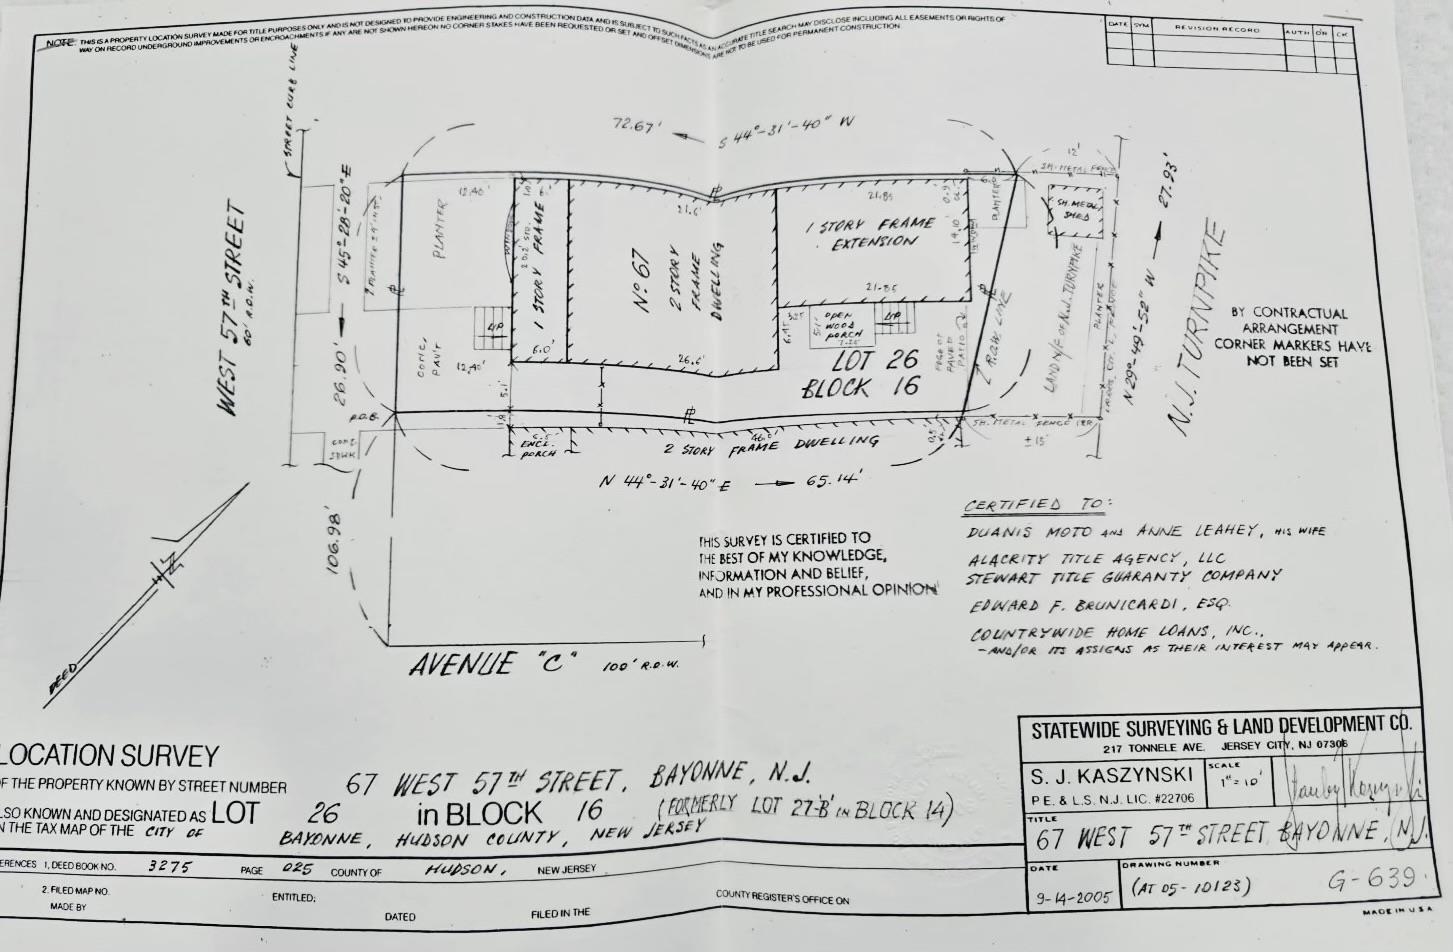 NOTE: THIS IS A PROPERTY LOCATION SURVEY MADE FOR TITLE PURPOSES ONLY AND IS NOT DESIGNED TO PROVIDE ENGINEERING AND CONSTRUCTION DATA AND IS SUBJECT TO SUCH FACTS AS AN ACCURATE TITLE SEARCH MAY DISCLOSE INCLUDING ALL EASEMENTS OR RIGHTS OF
WAY ON RECORD UNDERGROUND IMPROVEMENTS OR ENCROACHMENTS IF ANY ARE NOT SHOWN HEREON NO CORNER STAKES HAVE BEEN REQUESTED OR SET AND OFFSET DIMENSIONS ARE NOT TO BE USED FOR PERMANENT CONSTRUCTION.
DATE SYM REVISION RECORD AUTH DR CK
STREET CURB LINE
72.67' S 44°-31'-40" W
WEST 57TH STREET
60' R.O.W.
S 45°-28'-20" E
26.90'
12.40'
PLANTER
1 STORY FRAME
6.0'
21.6'
No 67
2 STORY
FRAME
DWELLING
26.6'
21.85
1 STORY FRAME
EXTENSION
14.10'
21.85
PLANTER
12'
SH. METAL FENCE
SH. METAL
SHED
27.93'
N 29°-49'-52" W
N.J. TURNPIKE
LAND N/F of N.J. TURNPIKE
PLANTER
R.O.W. LINE
UP
CONC.
PAV'T
12.40'
5.1'
OPEN
WOOD
PORCH
UP
LOT 26
BLOCK 16
BY CONTRACTUAL
ARRANGEMENT
CORNER MARKERS HAVE
NOT BEEN SET
P.O.B.
CONC.
SDWK
ENCL.
PORCH
46.6'
2 STORY FRAME DWELLING
SH. METAL FENCE
±15'
N 44°-31'-40" E 65.14'
106.98'
DEED
AVENUE "C" 100' R.O.W.
THIS SURVEY IS CERTIFIED TO
THE BEST OF MY KNOWLEDGE,
INFORMATION AND BELIEF,
AND IN MY PROFESSIONAL OPINION
CERTIFIED TO:
DUANIS MOTO AND ANNE LEAHEY, HIS WIFE
ALACRITY TITLE AGENCY, LLC
STEWART TITLE GUARANTY COMPANY
EDWARD F. BRUNICARDI, ESQ.
COUNTRYWIDE HOME LOANS, INC.,
-AND/OR ITS ASSIGNS AS THEIR INTEREST MAY APPEAR.
LOCATION SURVEY
OF THE PROPERTY KNOWN BY STREET NUMBER 67 WEST 57TH STREET, BAYONNE, N.J.
LSO KNOWN AND DESIGNATED AS LOT 26 in BLOCK 16 (FORMERLY LOT 27-'B' IN BLOCK 14)
N THE TAX MAP OF THE CITY OF BAYONNE, HUDSON COUNTY, NEW JERSEY
ERENCES 1, DEED BOOK NO. 3275 PAGE 025 COUNTY OF HUDSON, NEW JERSEY
2. FILED MAP NO. ENTITLED: COUNTY REGISTER'S OFFICE ON
MADE BY DATED FILED IN THE
STATEWIDE SURVEYING & LAND DEVELOPMENT CO.
217 TONNELE AVE. JERSEY CITY, NJ 07306
S. J. KASZYNSKI
P.E. & L.S. N.J. LIC. #22706
SCALE
1"=10'
TITLE
67 WEST 57TH STREET BAYONNE, N.J.
DATE
9-14-2005
DRAWING NUMBER
(AT 05-10123) G-639
MADE IN U.S.A.